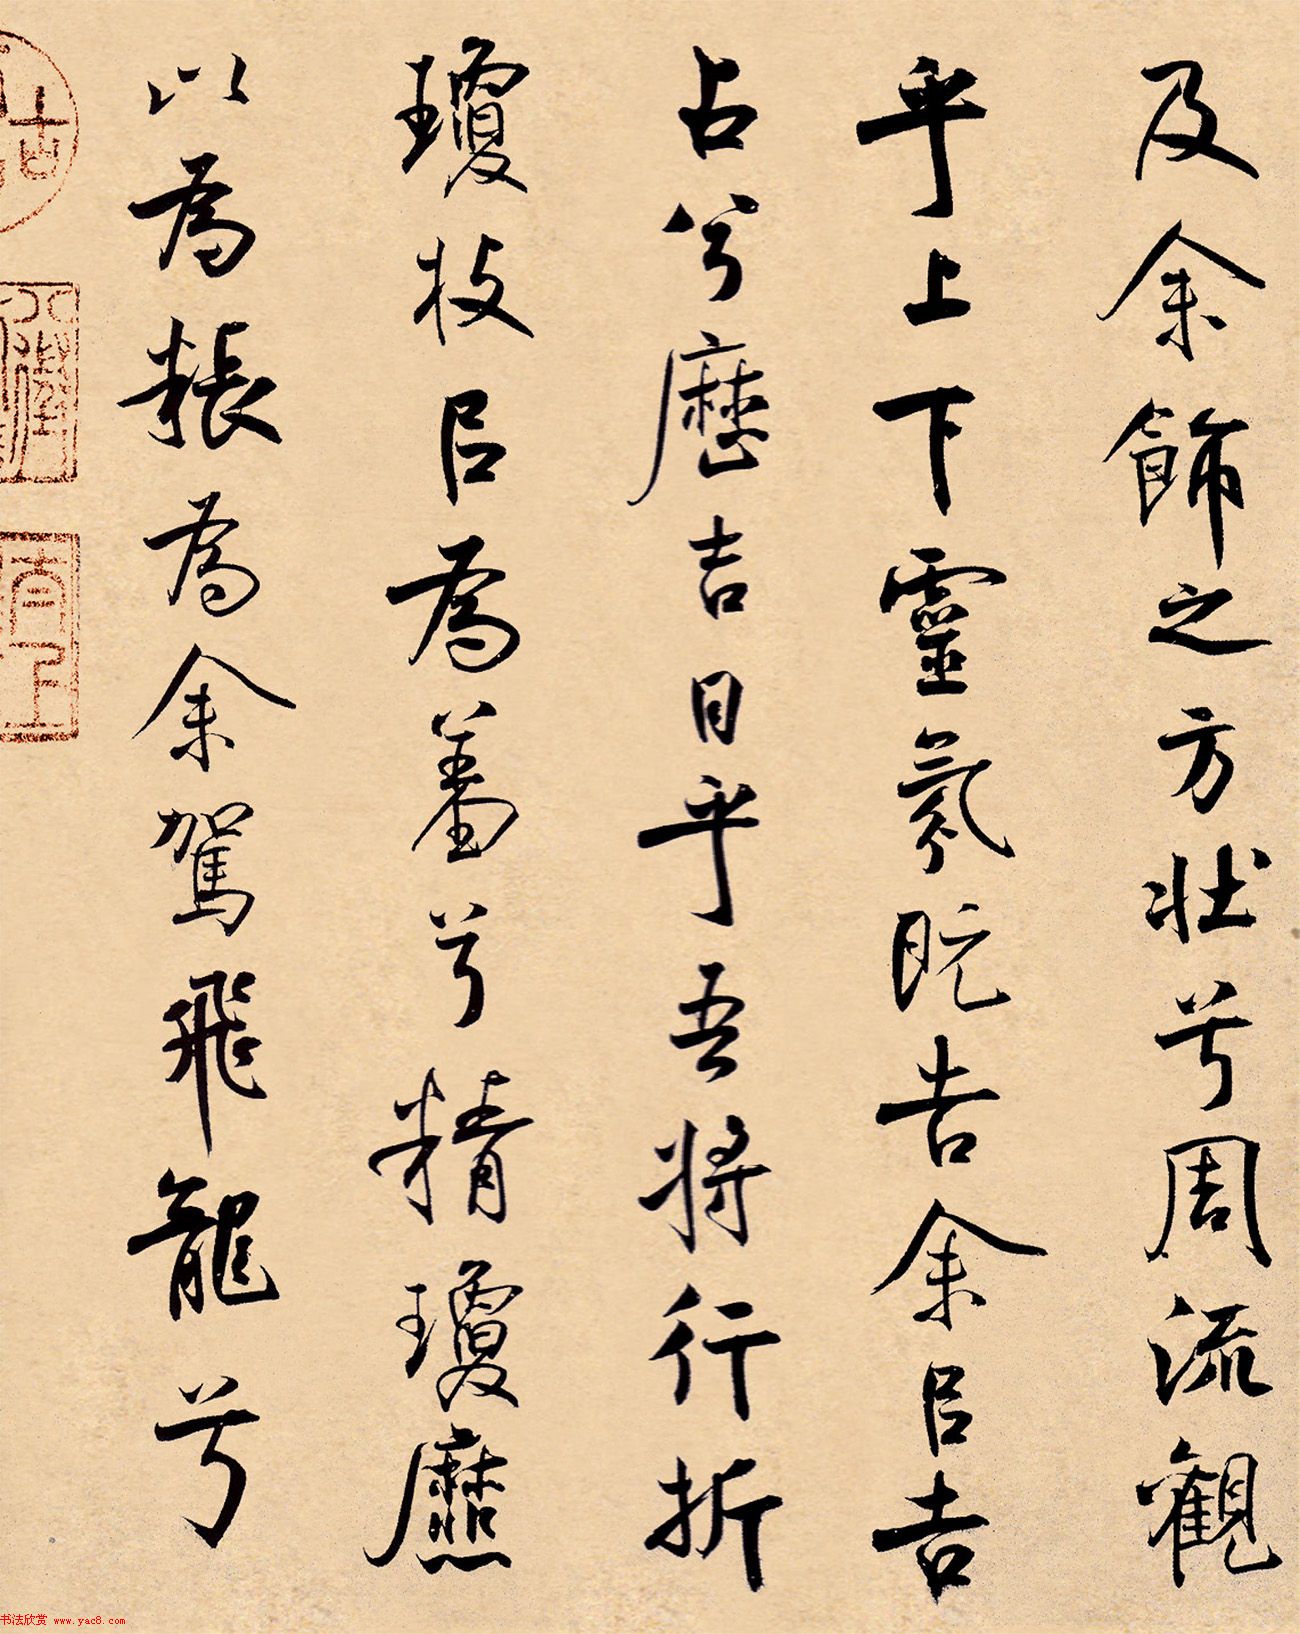 及余飾之方壯兮周流觀
乎上下靈氛既告余㠯吉
占兮歷吉日乎吾將行折
瓊枝㠯為羞兮精瓊爢
以為粻為余駕飛龍兮
书法欣赏 www.yac8.com